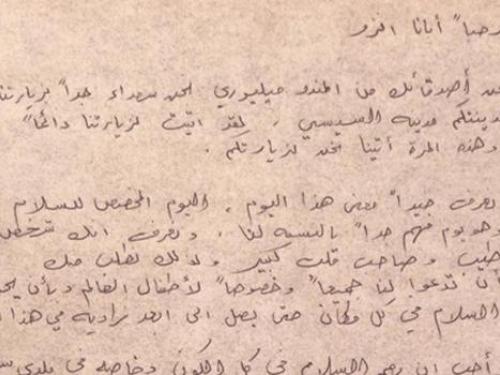 مرحباً أبانا العزيز
نحن أصدقائك من الهندو ميليوري نحن سعداء جداً بزيارتنا
مدينتكم مدينة السيسي . لقد أتيت لزيارتنا دائماً
وهذه المرة أتينا نحن لزيارتكم .
نعرف جيداً معنى هذا اليوم . اليوم المخصص للسلام
وهو يوم مهم جداً بالنسبة لنا . ونعرف انك شخص
طيب وصاحب قلب كبير ولذلك نطلب منك
ان تدعوا لنا جميعاً وخصوصاً لأطفال العالم وبأن يحل
السلام في كل مكان حتى يصل الى ابعد زاوية في هذا
أحب ان يعم السلام في كل الكون وخاصة في بلدي